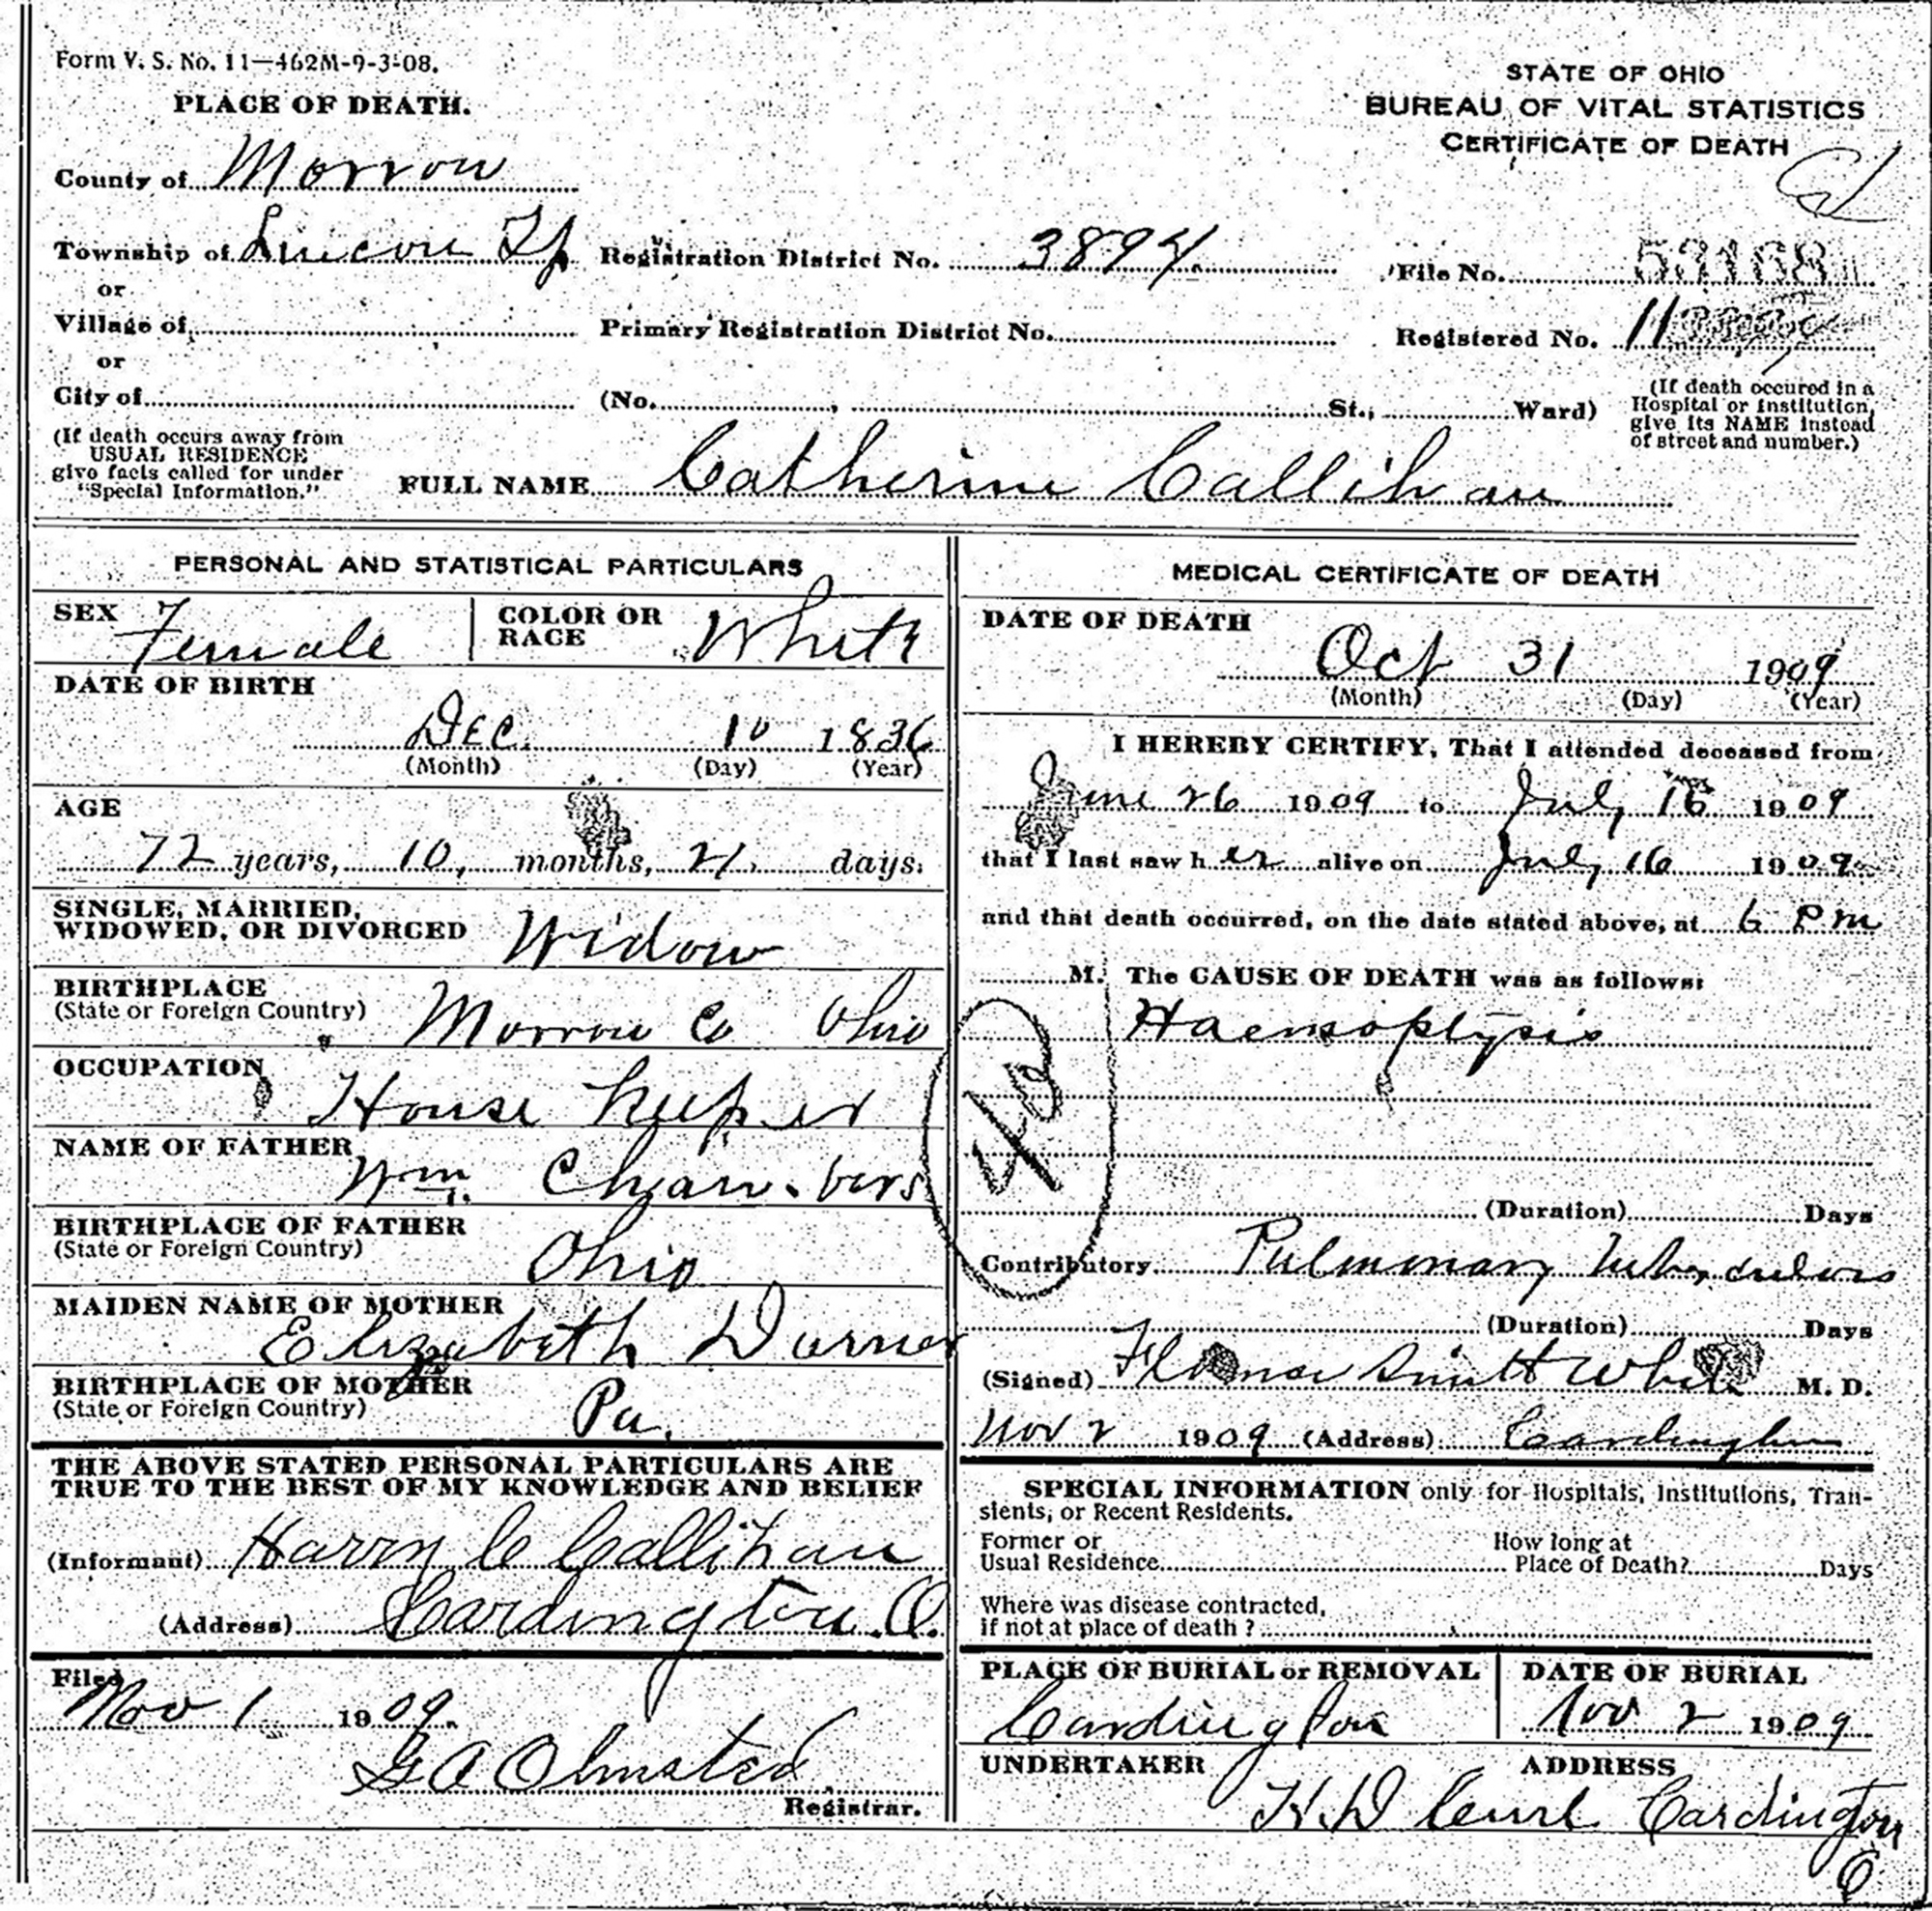 Form V. S. No. 11—462M-9-3-08.
PLACE OF DEATH.
STATE OF OHIO
BUREAU OF VITAL STATISTICS
CERTIFICATE OF DEATH
County of Morrow
Township of Lincoln Tp Registration District No. 3894 File No. 53168
or
Village of Primary Registration District No. Registered No. 11
or
City of (No. , St., Ward)
(If death occured in a
Hospital or institution,
give its NAME instead
of street and number.)
(If death occurs away from
USUAL RESIDENCE
give facts called for under
"Special Information."
FULL NAME Catherine Callihan
PERSONAL AND STATISTICAL PARTICULARS
SEX Female COLOR OR RACE White
DATE OF BIRTH
Dec. 10 1836
(Month) (Day) (Year)
AGE
72 years, 10, months, 21 days.
SINGLE, MARRIED,
WIDOWED, OR DIVORCED Widow
BIRTHPLACE
(State or Foreign Country) Morrow Co Ohio
OCCUPATION
House Keeper
NAME OF FATHER
Wm. Chambers
BIRTHPLACE OF FATHER
(State or Foreign Country) Ohio
MAIDEN NAME OF MOTHER
Elizabeth
BIRTHPLACE OF MOTHER
(State or Foreign Country) Pa.
THE ABOVE STATED PERSONAL PARTICULARS ARE
TRUE TO THE BEST OF MY KNOWLEDGE AND BELIEF
(Informant) Harry C Callihan
(Address) Cardington. O.
Filed
Nov 1 1909.
G A Olmsted
Registrar.
MEDICAL CERTIFICATE OF DEATH
DATE OF DEATH
Oct 31 1909
(Month) (Day) (Year)
I HEREBY CERTIFY, That I attended deceased from
June 26 1909 to July 16 1909
that I last saw her alive on July 16 1909
and that death occurred, on the date stated above, at 6 P m
M. The CAUSE OF DEATH was as follows:
Haemoptysis
(Duration) Days
Contributory Pulmonary Tuberculosis
(Duration) Days
(Signed) Florence Smith White M. D.
Nov 2 1909 (Address) Cardington
SPECIAL INFORMATION only for Hospitals, Institutions, Tran-
sients, or Recent Residents.
Former or
Usual Residence
How long at
Place of Death? Days
Where was disease contracted,
if not at place of death ?
PLACE OF BURIAL or REMOVAL
Cardington
DATE OF BURIAL
Nov 2 1909
UNDERTAKER ADDRESS
H D Curl Cardington
O